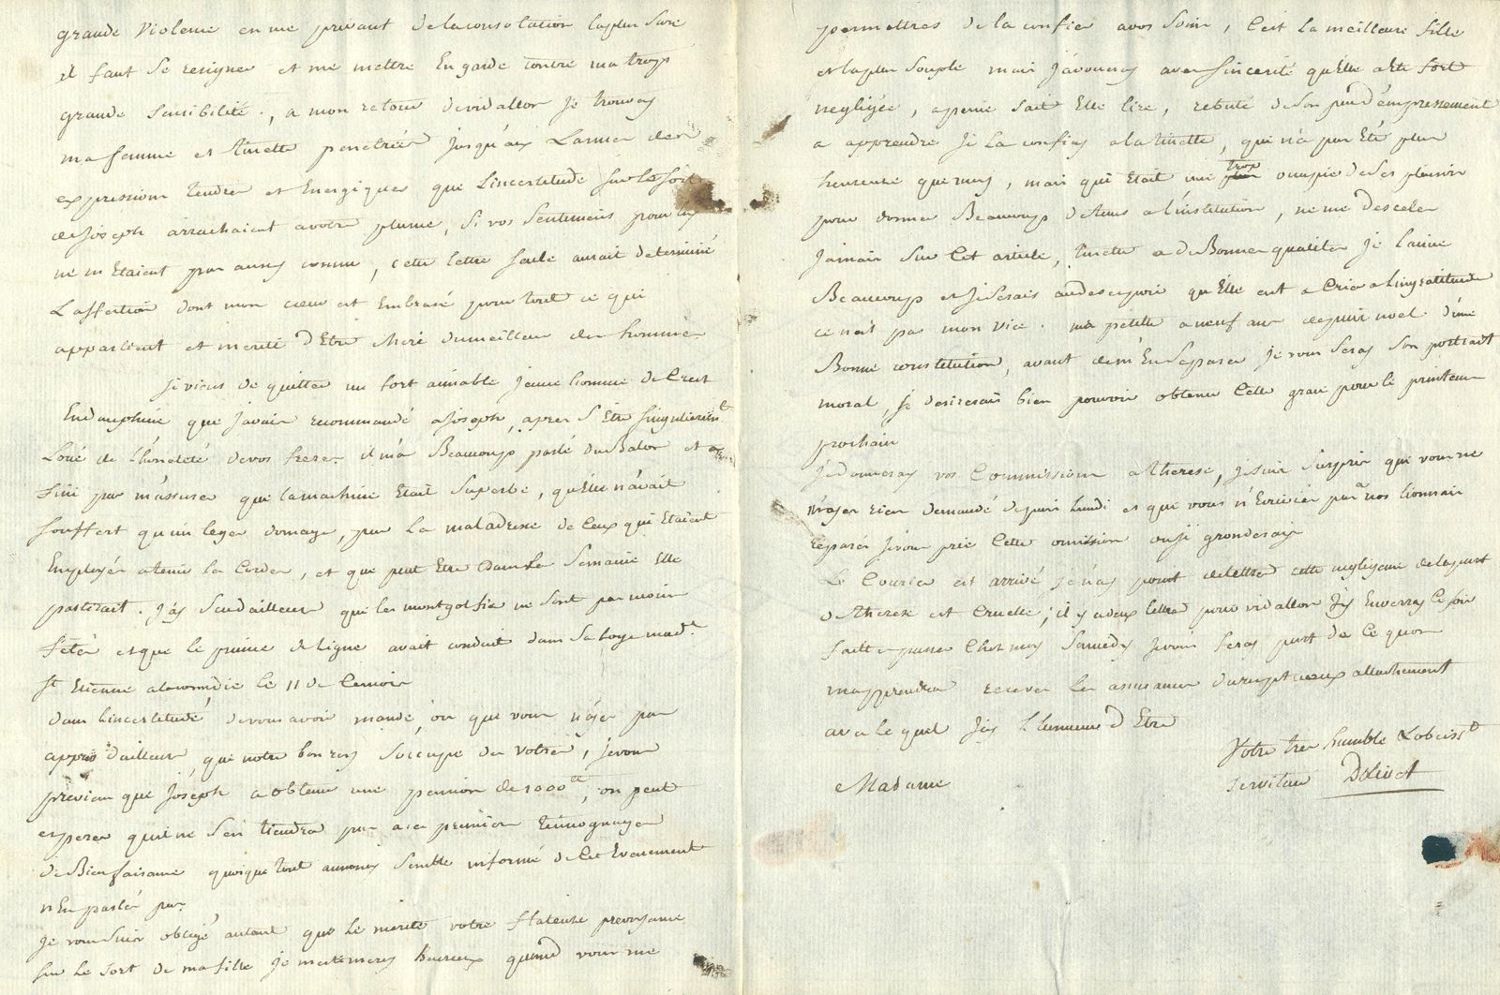 grande violence en me privant de la consolation la plus sure
il faut se resigner et me mettre En garde contre ma trop
grande sensibilité. , a mon retour de vidallon je trouvay
ma femme et tinette penetrées jusqu'aux Larmes des
expressions tendres et Energiques que L'incertitude sur le sort
de joseph arrachaient a votre plume, si vos sentimens pour luy
ne m'Etaient pas aussy connus, cette lettre seule aurait determiné
L'affection dont mon cœur est Embrasé pour tout ce qui
appartient et merite d'Etre cheri du meilleur des hommes.
je viens de quitter un fort aimable jeune homme de Crest
En dauphiné que j'avais recommandé a joseph, apres s'Etre singulierem.t
Loué de l'honeteté de vos freres il m'a Beaucoup parlé du Balon et a
fini par m'assurer que la machine Etait superbe, qu'Elle n'avait
souffert qu'un leger domage, par la maladresse de Ceux qui Etaient
Employés a tenir les Cordes, et que peut Etre dans la semaine Elle
partirait. j'ay su d'ailleurs que les montgolfier ne sont pas moins
fetés et que le prince de ligne avait conduit dans sa loge mad.e
st Etienne a la comedie le 11 de Ce mois
dans l'incertitude de vous avoir mandé, ou que vous n'ayez pas
appris d'ailleurs, que notre bon roy s'occupe du votre, je vous
previens que joseph a obtenu une pension de 1000 tt, on peut
esperer qu'il ne s'en tiendra pas a ces premiers temoignages
de Bienfaisance quoique tout annonay semble informé de Cet Evenement
n'En parlés pas.
je vous suis obligé autant que le merite votre flateuse prevoyance
sur le sort de ma fille je m'estimeray heureux quand vous me
permettrés de la confier a vos soins, C'est la meilleure fille
et la plus souple mais j'avoueray avec sincerité qu'Elle a Eté fort
negligée, a peine sait Elle lire, rebuté de son peu d'empressement
a apprendre je la confiay a la tinette, qui n'a pas Eté plus
heureuse que moy, mais qui Etait une trop occupée de ses plaisirs
pour donner Beaucoup de tems a l'institution, ne me decelez
jamais sur Cet article, tinette a de Bonnes qualités je l'aime
Beaucoup et je serais au desespoir qu'Elle eut a Crier a L'ingratitude
ce n'est pas mon vice. ma petite a neuf ans depuis noel. d'une
Bonne constitution, avant de m'En separer je vous feray son portrait
moral, je desirerais bien pouvoir obtenir Cette grace pour le printems
prochain
je donneray vos Commissions a therese, je suis surpris que vous ne
m'ayez rien demandé depuis lundi et que vous n'Ecriviés pas a nos lionnais
reparés je vous prie Cette omission ou je gronderais
Le Courier est arrivé je n'ay point de lettre cette negligence de la part
de therese est Cruelle; il y a deux lettres pour vidallon j'y Enverray ce soir
faittes passer Chez moy samedy je vous feray part de Ce qu'on
m'apprendra recevez les assurances du respectueux attachement
avec lequel j'ay L'honneur d'Etre
Madame
Votre tres humble & obeiss.t
serviteur Dolivet